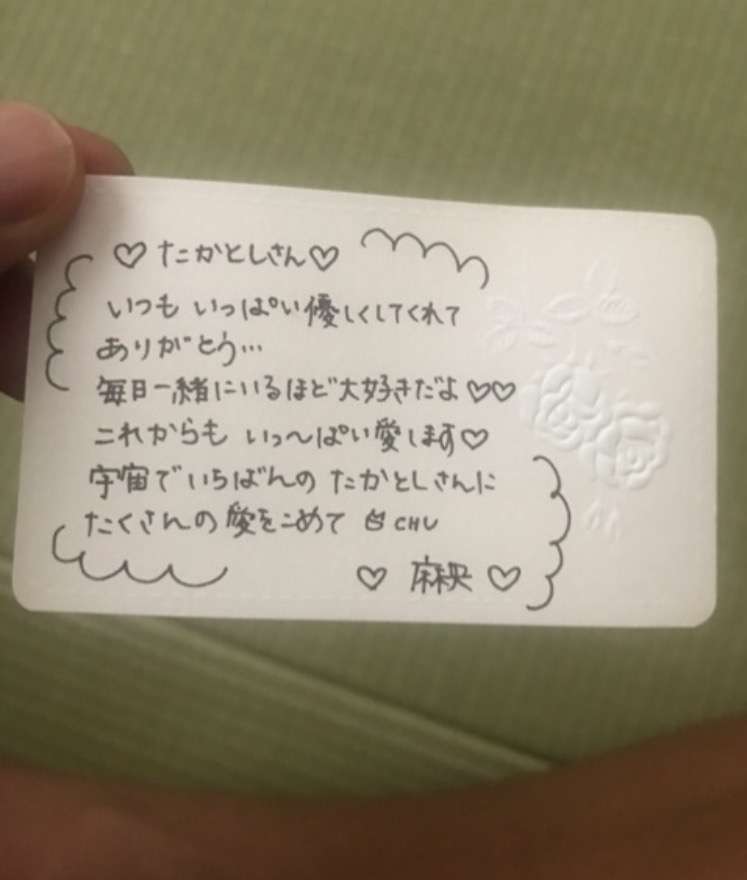 ♡たかとしさん♡
いつも いっぱい優しくしてくれて
ありがとう…
毎日一緒にいるほど大好きだよ♡♡
これからも いっ〜ぱい愛します♡
宇宙でいちばんの たかとしさんに
たくさんの愛をこめて CHU
♡ 麻央 ♡